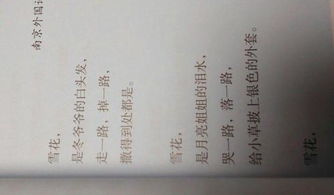 南京外国语
雪花，
是冬爷爷的白头发，
走一路，掉一路，
撒得到处都是。
雪花，
是月亮姐姐的泪水，
哭一路，落一路，
给小草披上银色的外套。
雪花，